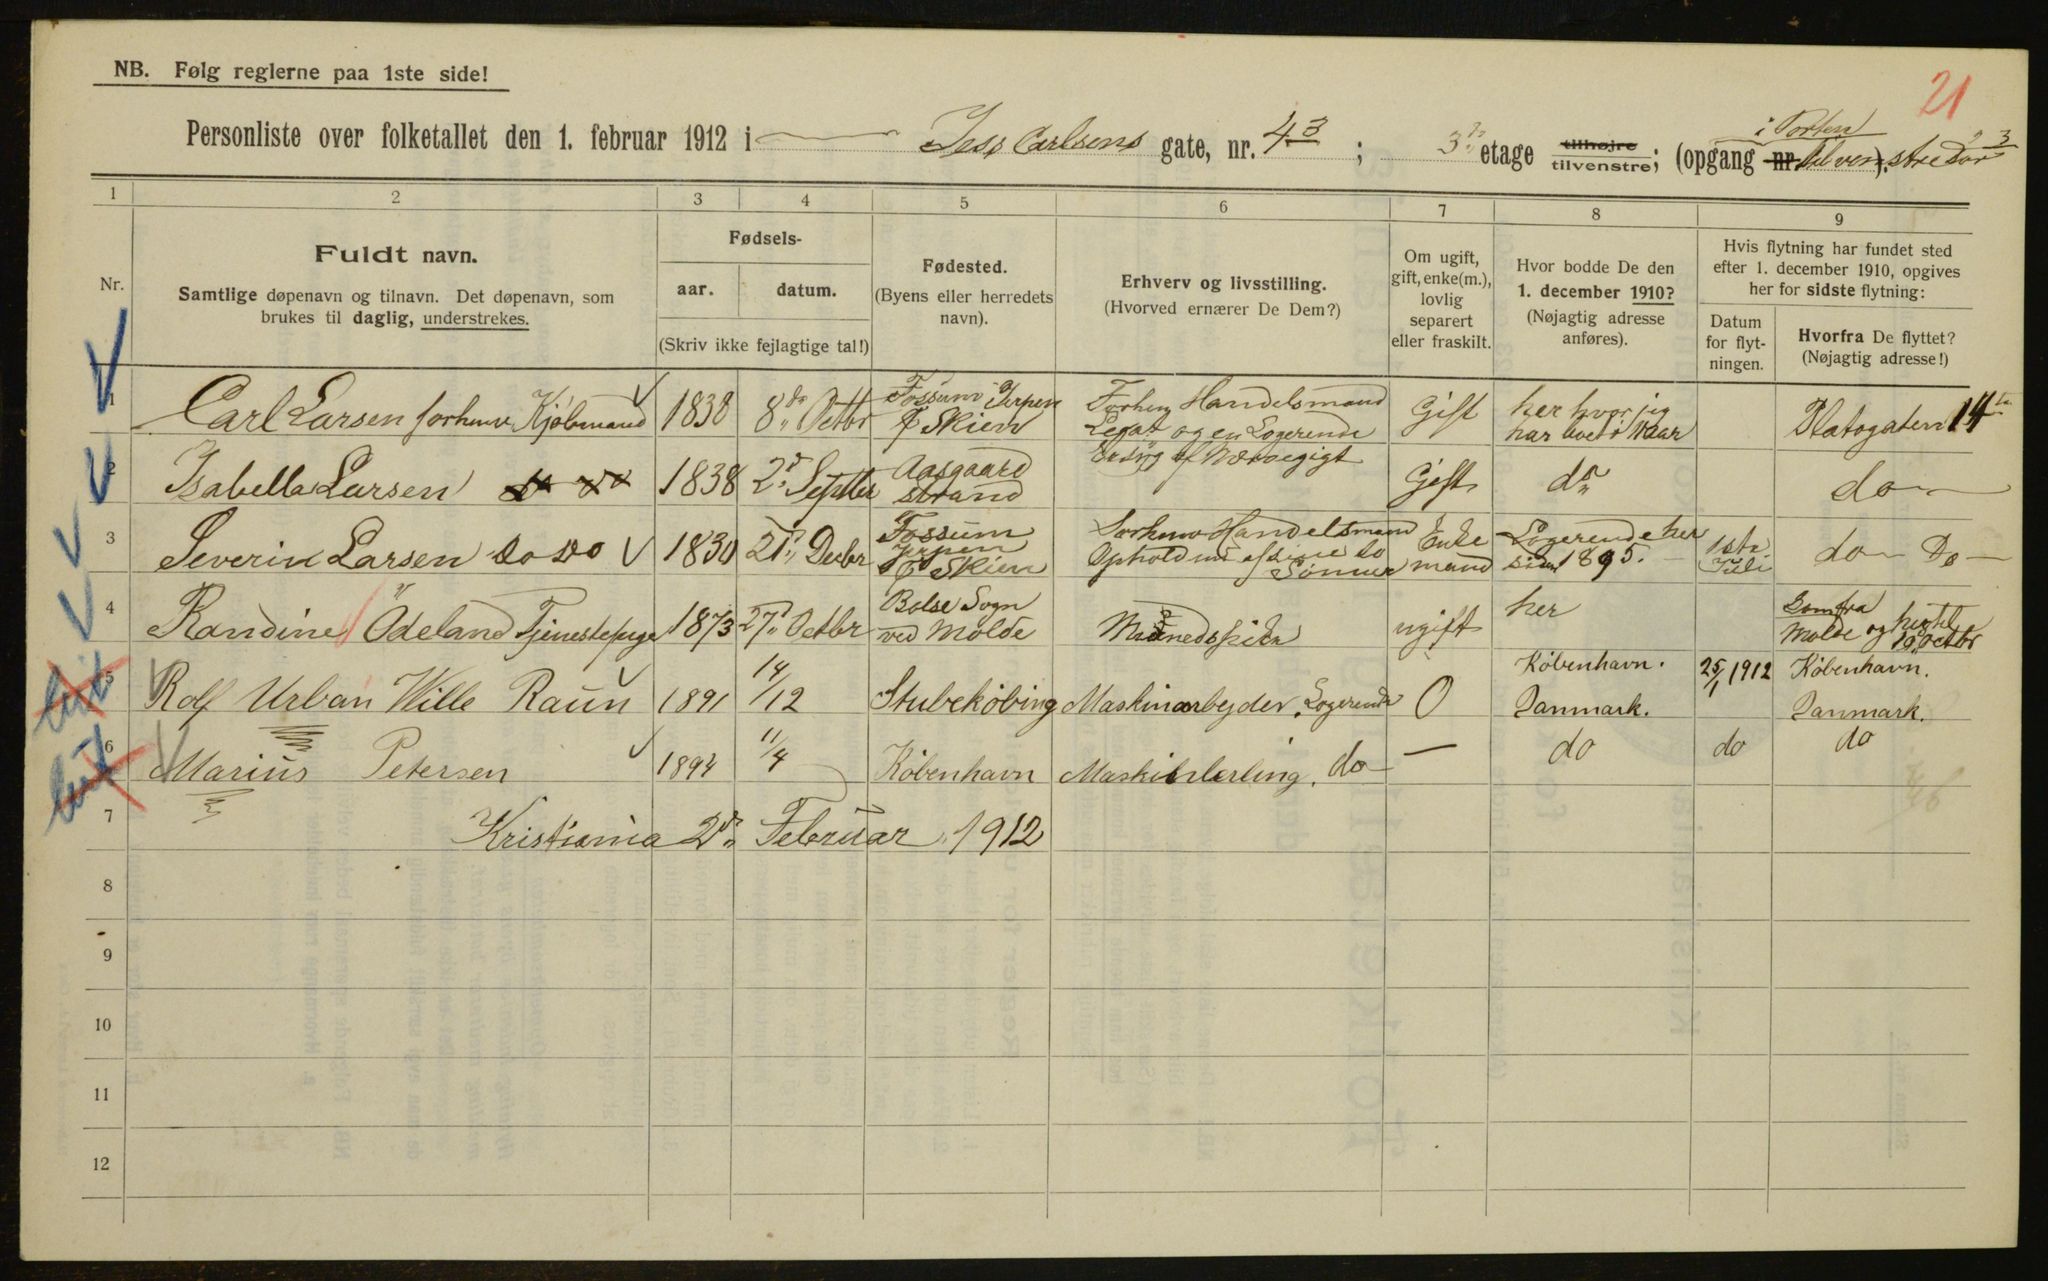 NB. Følg reglerne paa 1ste side!
21
Personliste over folketallet den 1. februar 1912 i Jess Carlsens gate, nr. 43; 3die etage tilhøjre tilvenstre; (opgang nr. tilvenstre Dør).
i Porten
1 2 3 4 5 6 7 8 9
Nr.
Fuldt navn.
Samtlige døpenavn og tilnavn. Det døpenavn, som
brukes til daglig, understrekes.
Fødsels-
aar. datum.
(Skriv ikke fejlagtige tal!)
Fødested.
(Byens eller herredets
navn).
Erhverv og livsstilling.
(Hvorved ernærer De Dem?)
Om ugift,
gift, enke(m.),
lovlig
separert
eller fraskilt.
Hvor bodde De den
1. december 1910?
(Nøjagtig adresse
anføres).
Hvis flytning har fundet sted
efter 1. december 1910, opgives
her for sidste flytning:
Datum
for flyt-
ningen.
Hvorfra De flyttet?
(Nøjagtig adresse!)
1 Carl Larsen forhenv Kjøbmand 1838 8de Octbr Fossum Jerpen Skien Forhenv Handelsmand Legat og en Logerende Gift her hvor jeg har boet i Aar Platogaten 14
2 Isabella Larsen 1838 2d Septbr Aasgaard strand Gift do do
3 Severin Larsen do do 1830 21d Decbr Fossum Jerpen Skien Forhenv Handelsmand Ophold af sine to Sønner Enke mand Logerende her siden 1895. 1ste Juli do Do
4 Randine Ödeland Tjenestepige 1873 27d Octbr Bolsø Sogn ved Molde Maanedspike ugift her kom fra Molde og hertil 19 Octbr
5 Rolf Urban Wille Raun 1891 14/12 Stubekøbing Maskinarbejder. Logerende O København. Danmark. 25/1 1912 København. Danmark.
6 Marius Petersen 1894 11/4 København Maskinlerling. do — do do do
7 Kristiania 2d Februar 1912
8
9
10
11
12